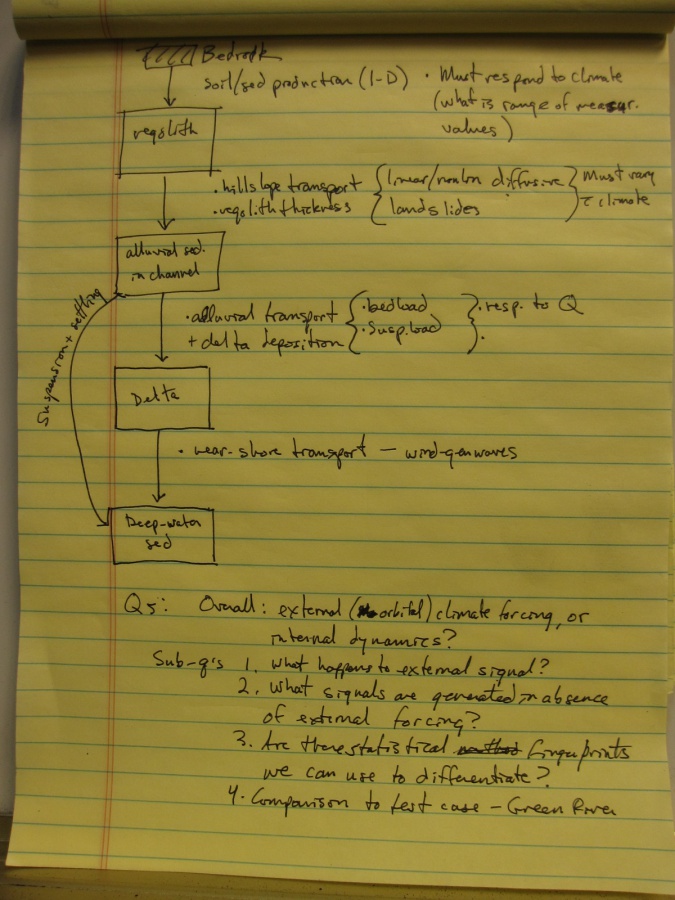 Bedrock
soil/sed production (1-D) • Must respond to climate
(what is range of measur.
values)
regolith
• hillslope transport { linear/nonlin diffusive } Must vary
• regolith thickness { landslides } c̄ climate
alluvial sed.
in channel
Suspension + settling
• alluvial transport { • bedload } • resp. to Q
+ delta deposition { • Susp. load } •
Delta
• near-shore transport — wind-gen waves
Deep-water
sed
Qs: Overall: external (orbital) climate forcing, or
internal dynamics?
Sub-q's 1. What happens to external signal?
2. What signals are generated in absence
of external forcing?
3. Are there statistical fingerprints
we can use to differentiate?
4. Comparison to test case – Green River